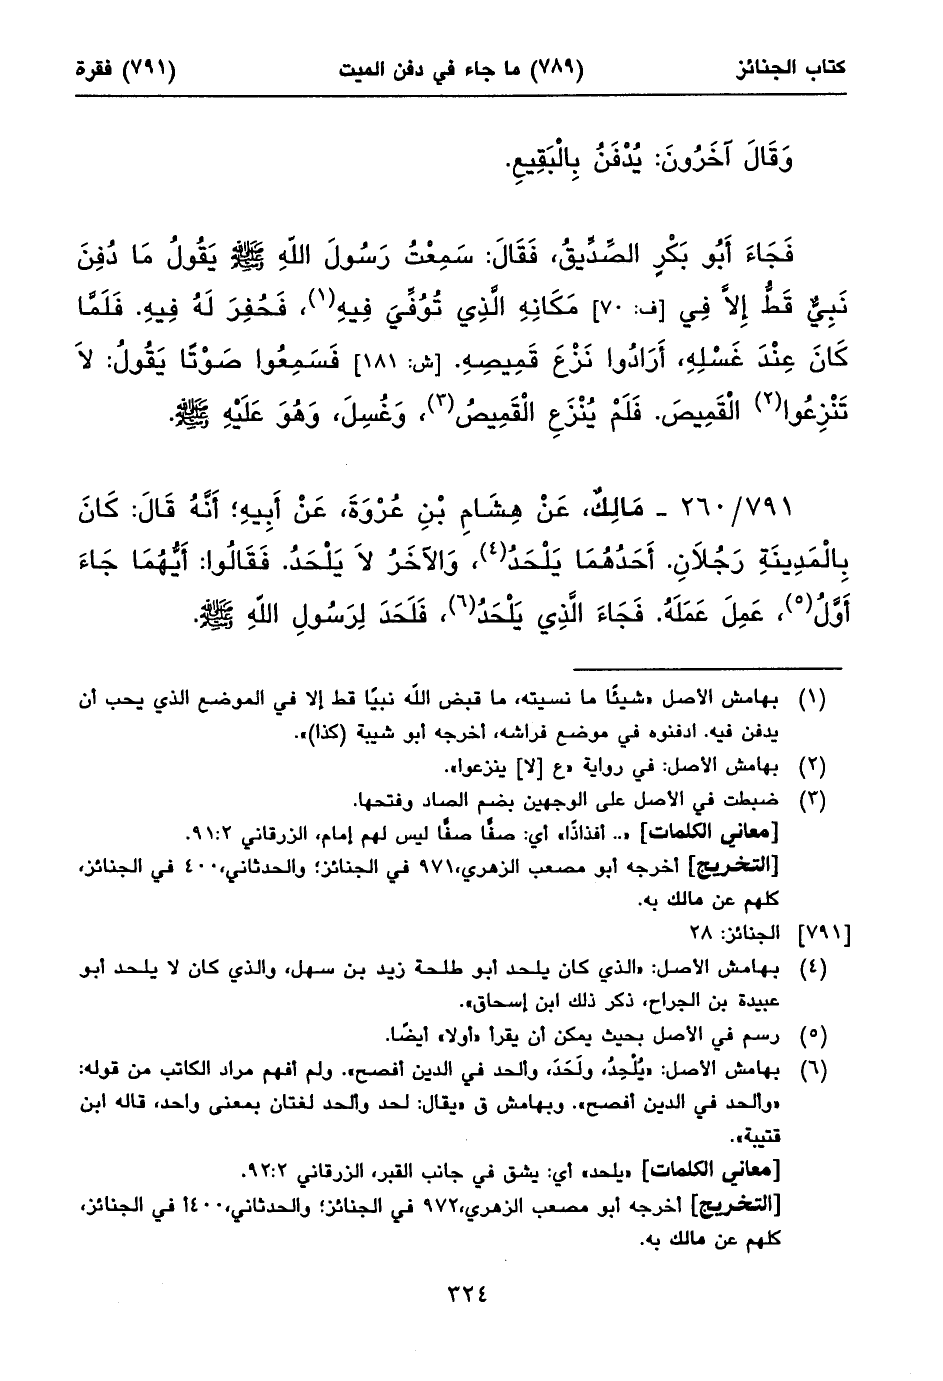 كتاب الجنائز (٧٨٩) ما جاء في دفن الميت (٧٩١) فقرة
وَقَالَ آخَرُونَ: يُدْفَنُ بِالْبَقِيعِ.
فَجَاءَ أَبُو بَكْرٍ الصِّدِّيقُ، فَقَالَ: سَمِعْتُ رَسُولَ اللّهِ ﷺ يَقُولُ مَا دُفِنَ
نَبِيٌّ قَطُّ إِلاَّ فِي [ف: ٧٠] مَكَانِهِ الَّذِي تُوُفِّيَ فِيهِ(١)، فَحُفِرَ لَهُ فِيهِ. فَلَمَّا
كَانَ عِنْدَ غَسْلِهِ، أَرَادُوا نَزْعَ قَمِيصِهِ. [ش: ١٨١] فَسَمِعُوا صَوْتًا يَقُولُ: لاَ
تَنْزِعُوا(٢) الْقَمِيصَ. فَلَمْ يُنْزَعِ الْقَمِيصُ(٣)، وَغُسِلَ، وَهُوَ عَلَيْهِ ﷺ.
٢٦٠/٧٩١ - مَالِكٌ، عَنْ هِشَامِ بْنِ عُرْوَةَ، عَنْ أَبِيهِ؛ أَنَّهُ قَالَ: كَانَ
بِالْمَدِينَةِ رَجُلاَنِ. أَحَدُهُمَا يَلْحَدُ(٤)، وَالآخَرُ لاَ يَلْحَدُ. فَقَالُوا: أَيُّهُمَا جَاءَ
أَوَّلُ(٥)، عَمِلَ عَمَلَهُ. فَجَاءَ الَّذِي يَلْحَدُ(٦)، فَلَحَدَ لِرَسُولِ اللّهِ ﷺ.
(١) بهامش الأصل «شيئًا ما نسيته، ما قبض اللّه نبيًا قط إلا في الموضع الذي يحب أن
يدفن فيه. ادفنوه في موضع فراشه، أخرجه أبو شيبة (كذا)».
(٢) بهامش الأصل: في رواية «ع [لا] ينزعوا».
(٣) ضبطت في الأصل على الوجهين بضم الصاد وفتحها.
[معاني الكلمات] «.. أفذاذًا» أي: صفًّا صفًّا ليس لهم إمام، الزرقاني ٩١:٢.
[التخريج] أخرجه أبو مصعب الزهري،٩٧١ في الجنائز؛ والحدثاني،٤٠٠ في الجنائز،
كلهم عن مالك به.
[٧٩١] الجنائز: ٢٨
(٤) بهامش الأصل: «الذي كان يلحد أبو طلحة زيد بن سهل، والذي كان لا يلحد أبو
عبيدة بن الجراح، ذكر ذلك ابن إسحاق».
(٥) رسم في الأصل بحيث يمكن أن يقرأ «أولا» أيضًا.
(٦) بهامش الأصل: «يُلْحِدُ، ولَحَدَ، وألحد في الدين أفصح». ولم أفهم مراد الكاتب من قوله:
«وألحد في الدين أفصح». وبهامش ق «يقال: لحد وألحد لغتان بمعنى واحد، قاله ابن
قتيبة».
[معاني الكلمات] «يلحد» أي: يشق في جانب القبر، الزرقاني ٩٢:٢.
[التخريج] أخرجه أبو مصعب الزهري،٩٧٢ في الجنائز؛ والحدثاني،٤٠٠أ في الجنائز،
كلهم عن مالك به.
٣٢٤